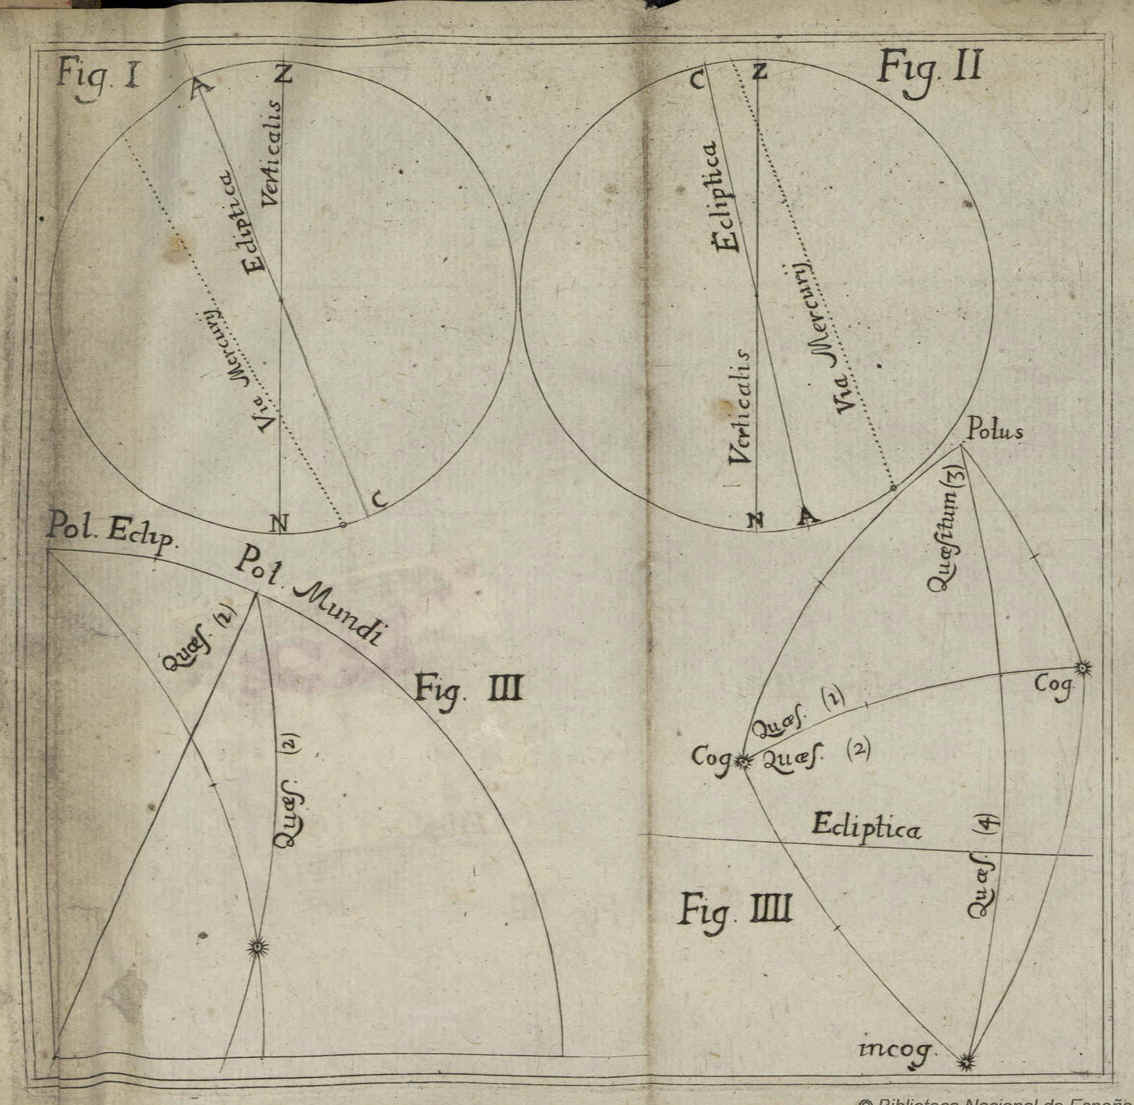 Fig. I
A
Z
Verticalis
Ecliptica
Via Mercurij
N
C
Fig. II
C
Z
Ecliptica
Verticalis
Via Mercurij
N
A
Pol. Eclip.
Pol. Mundi
Quæſ. (2)
Quæſ. (2)
Fig. III
Polus
Quæſitum (3)
Cog
Quæſ. (1)
Cog
Quæſ. (2)
Ecliptica
Quæſ. (4)
Fig. IIII
incog.
© Biblioteca Nacional de España